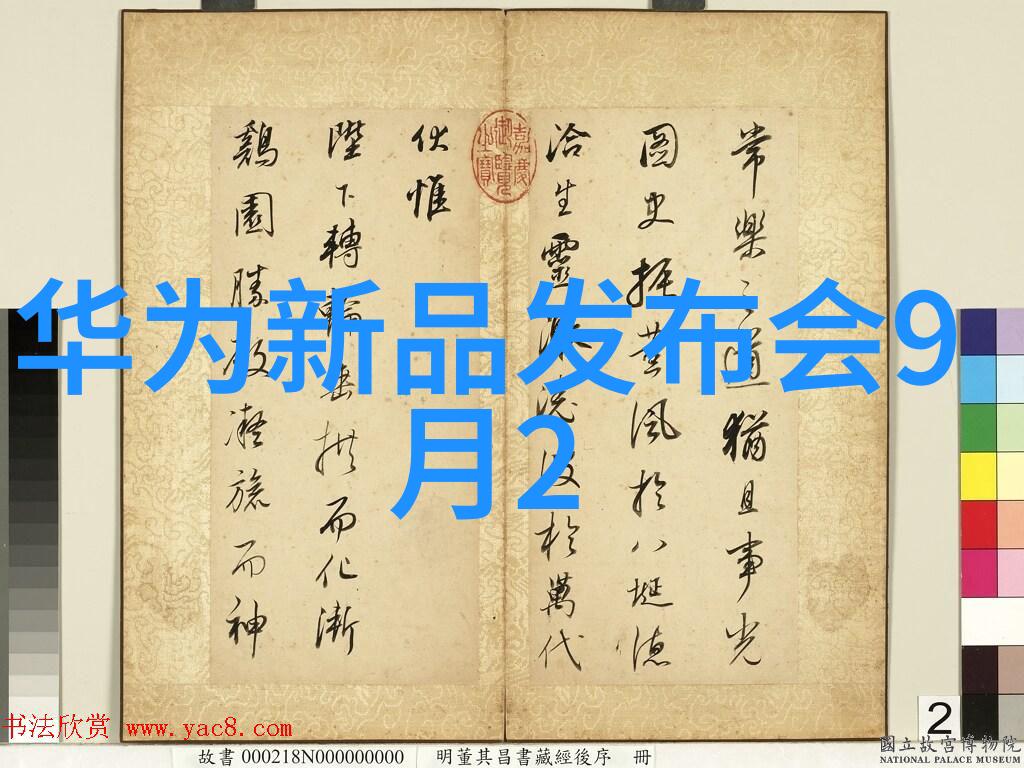 华为新品发布会9
月2
常樂之道猶且事光
圖史振芸風於八埏德
洽生靈激澆波於萬代
伏惟
陛下轉輪垂拱而化漸
鷄園勝殿凝旒而神
嘉慶
御覽
之寶
书法欣赏 www.yac8.com
故書 000218N000000000 明董其昌書藏經後序 冊
2
國立故宮博物院
NATIONAL PALACE MUSEUM